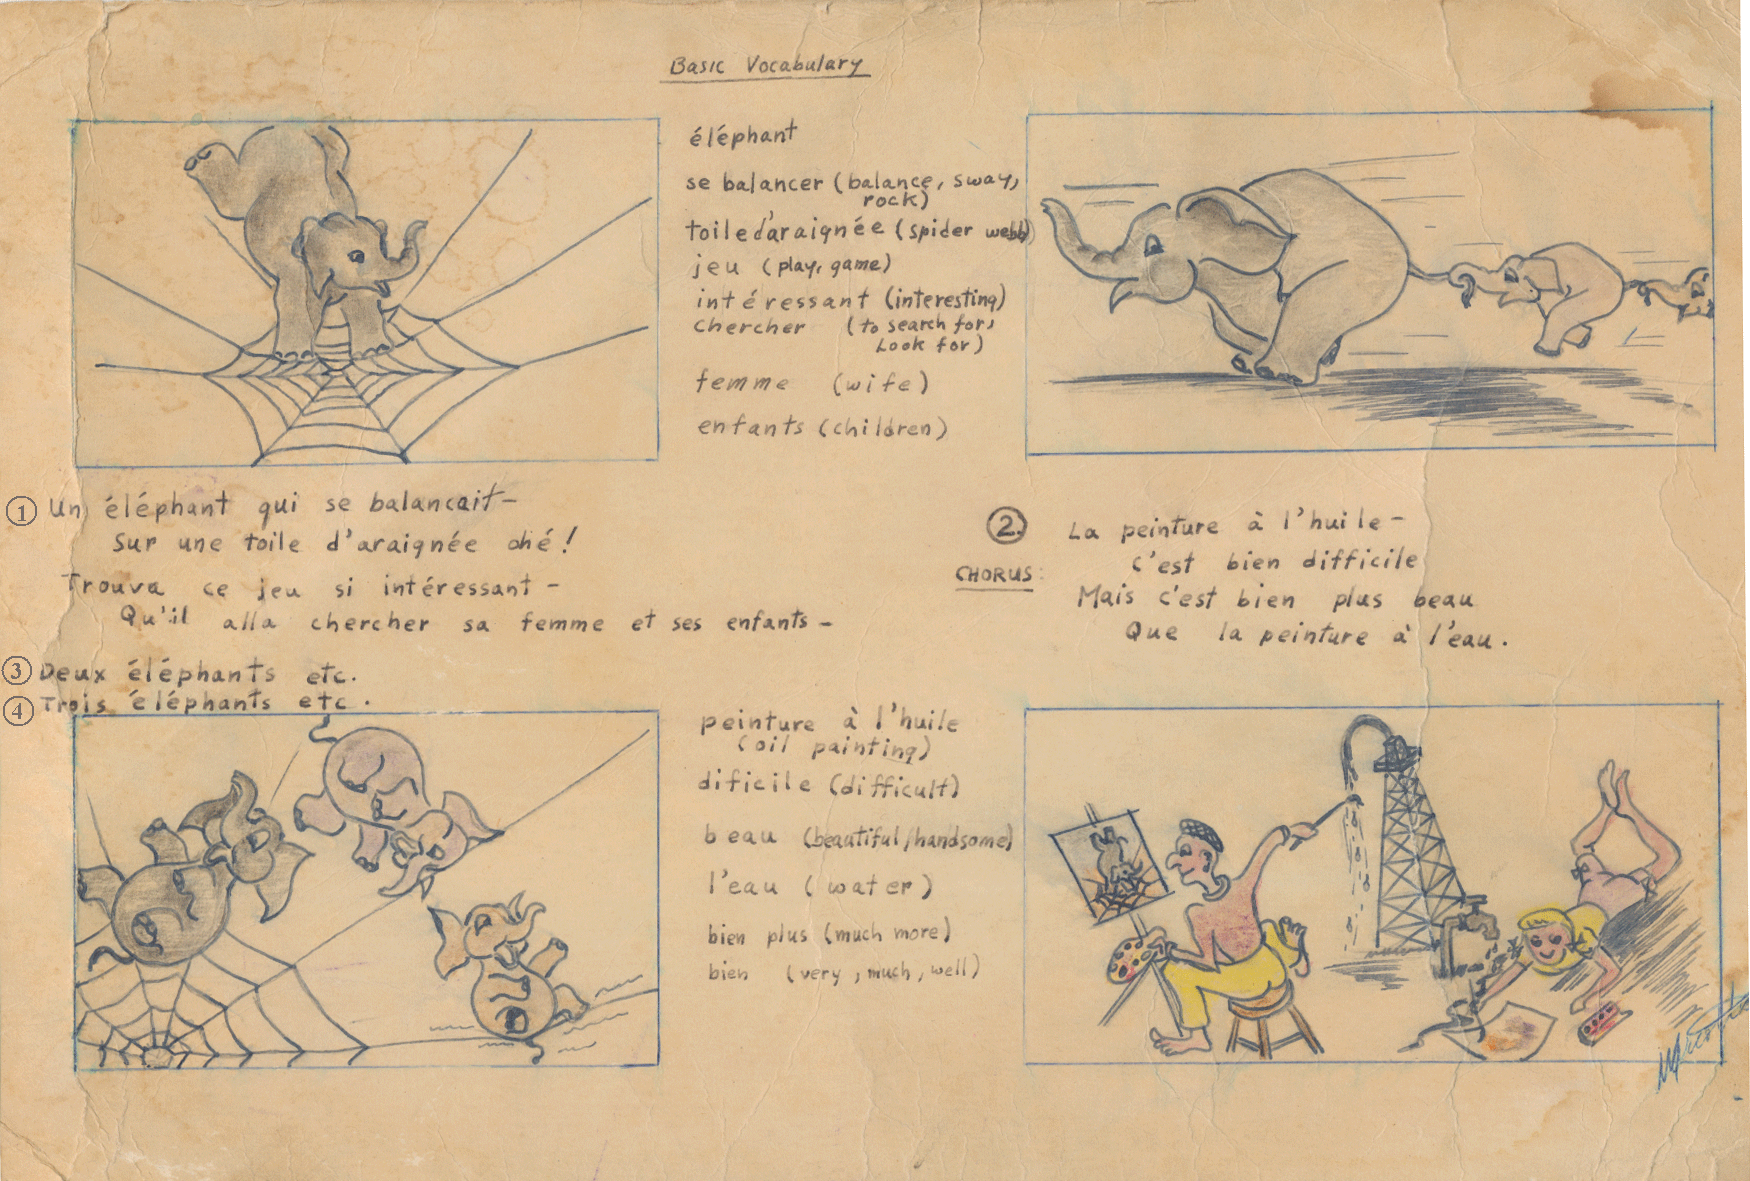 Basic Vocabulary
éléphant
se balancer (balance, sway,
rock)
toile d'araignée (spider webb)
jeu (play, game)
intéressant (interesting)
chercher (to search for,
Look for)
femme (wife)
enfants (children)
① Un éléphant qui se balancait -
Sur une toile d'araignée ohé!
Trouva ce jeu si intéressant -
Qu'il alla chercher sa femme et ses enfants -
③ Deux éléphants etc.
④ Trois éléphants etc.
②. La peinture à l'huile -
CHORUS: C'est bien difficile
Mais c'est bien plus beau
Que la peinture à l'eau.
peinture à l'huile
(oil painting)
dificile (difficult)
beau (beautiful/handsome)
l'eau (water)
bien plus (much more)
bien (very, much, well)